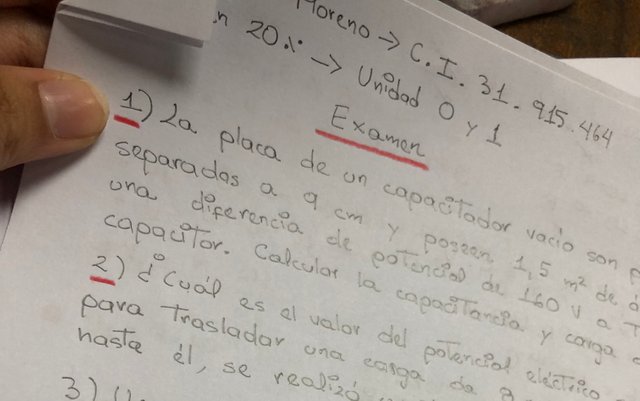 Moreno → C.I. 31.915.464
20% → Unidad 0 y 1
Examen
1) La placa de un capacitador vacio son
separadas a 9 cm y poseen 1,5 m² de
una diferencia de potencial de 160 V a
capacitor. Calcular la capacitancia y carga
2) ¿Cuál es el valor del potencial eléctrico
para trasladar una carga de
hasta él, se realizó
3)